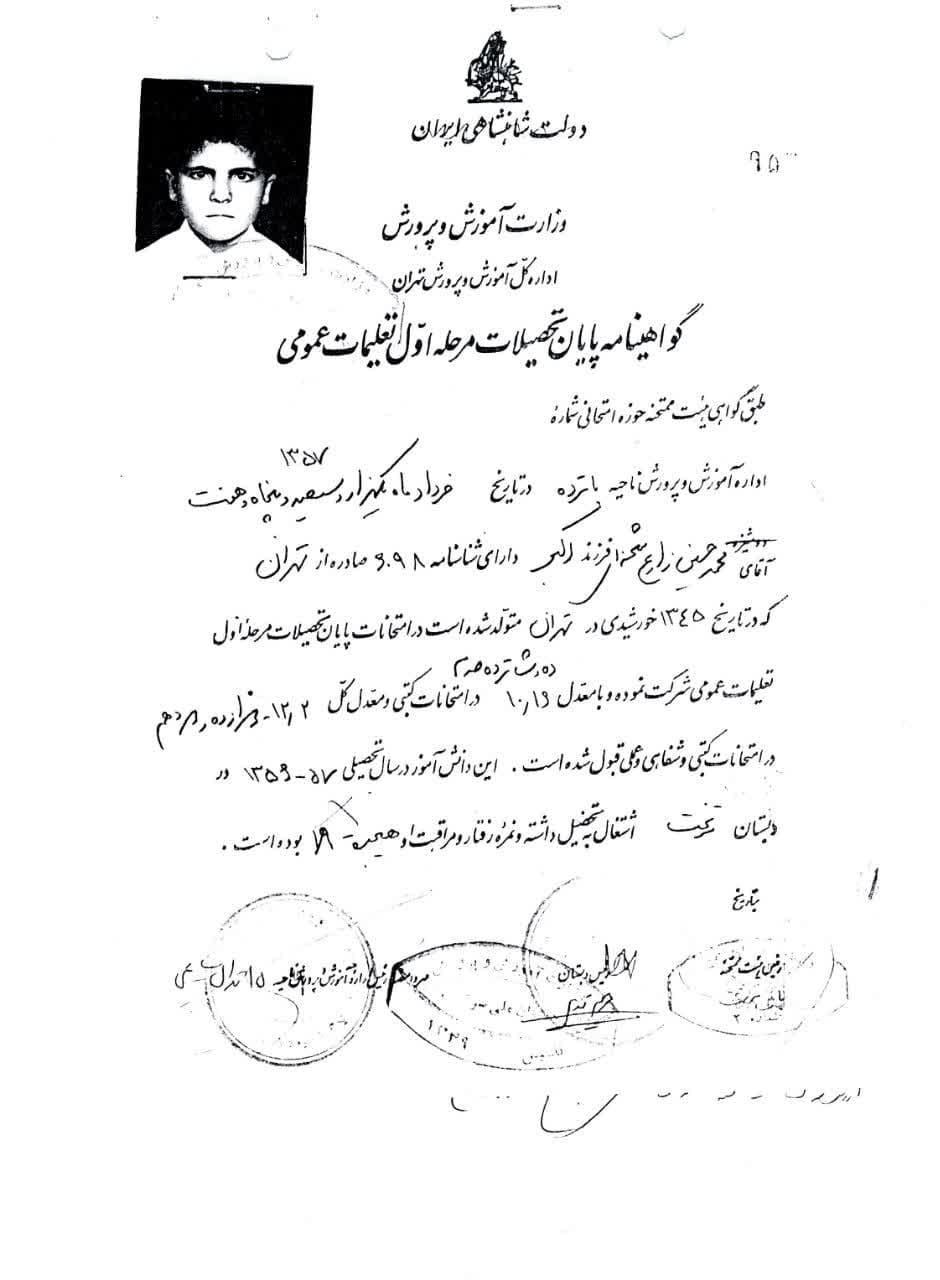 دولت شاهنشاهی ایران
۹۵
وزارت آموزش و پرورش
اداره کل آموزش و پرورش تهران
گواهینامه پایان تحصیلات مرحله اوّل تعلیمات عمومی
طبق گواهی هیئت ممتحنه حوزه امتحانی شمارهٔ
۱۳۵۷
اداره آموزش و پرورش ناحیه پانزده در تاریخ خرداد ماه یکهزار و سیصد و پنجاه و هفت
دوشیزه
آقای محمد حسین فرزند اکبر دارای شناسنامه ۶۰۹۸ صادره از تهران
که در تاریخ ۱۳۴۵ خورشیدی در تهران متولّد شده است در امتحانات پایان تحصیلات مرحله اول
ده و شانزده صدم
تعلیمات عمومی شرکت نموده و با معدل ۱۰٫۱۶ در امتحانات کتبی و معدل کلّ ۱۲٫۲ - دوازده و دو دهم
در امتحانات کتبی و شفاهی و عملی قبول شده است . این دانش آموز در سال تحصیلی ۵۷-۱۳۵۶ در
دبستان اشتغال به تحصیل داشته و نمره رفتار و مراقبت او بوده است .
بتاریخ
رئیس هیئت ممتحنه
رئیس دبستان
رئیس اداره آموزش و پرورش ناحیه ۱۵
۱۳۳۹
تأسیس